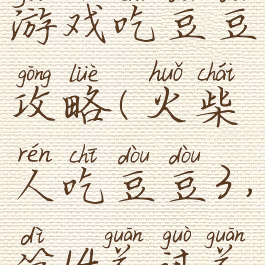 游戏吃豆豆
gōng lüè huǒ chái
攻略(火柴
rén chī dòu dòu
人吃豆豆3,
dì guān guò guān
第14关过关